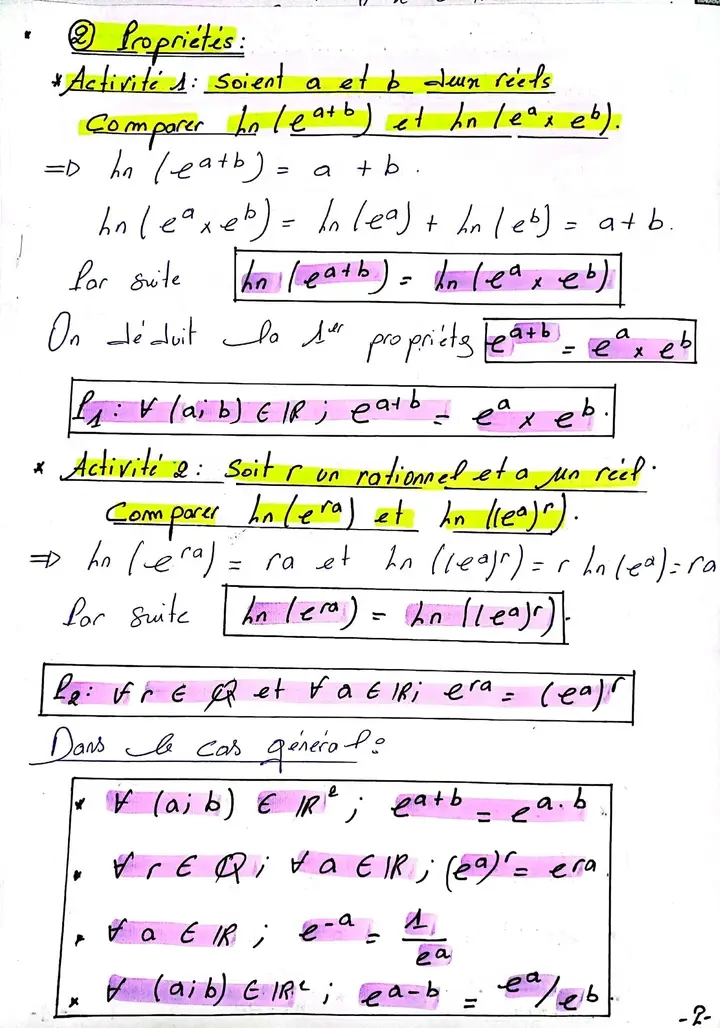 ② Propriétés:
* Activité 1: Soient a et b deux réels
Comparer ln(e^{a+b}) et ln(e^a x e^b).
=> ln(e^{a+b}) = a + b.
ln(e^a x e^b) = ln(e^a) + ln(e^b) = a+b.
Par suite ln(e^{a+b}) = ln(e^a x e^b)
On déduit la 1er propriéts e^{a+b} = e^a x e^b
P1: ∀ (a; b) ∈ IR; e^{a+b} = e^a x e^b.
* Activité 2: Soit r un rationnel et a un réel.
Comparer ln(e^{ra}) et ln((e^a)^r).
=> ln(e^{ra}) = ra et ln((e^a)^r) = r ln(e^a) = ra
Par suite ln(e^{ra}) = ln((e^a)^r).
P2: ∀ r ∈ Q et ∀ a ∈ IR; e^{ra} = (e^a)^r
Dans le cas général:
* ∀ (a; b) ∈ IR²; e^{a+b} = e^{a.b}
* ∀ r ∈ Q; ∀ a ∈ IR; (e^a)^r = e^{ra}
* ∀ a ∈ IR; e^{-a} = 1/e^a
* ∀ (a; b) ∈ IR²; e^{a-b} = e^a/e^b
-2-